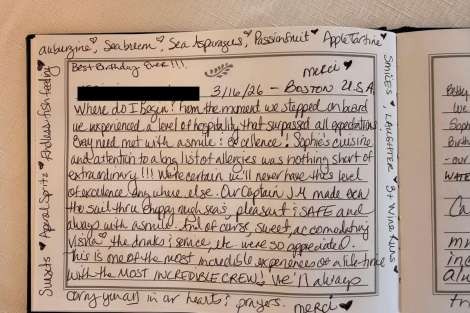 aubergine, Seabream, Sea Asparagus, Passionfruit ♥ Apple Tartine
Best Birthday Ever!!!
merci ♥
3/16/26 - BOSTON U.S.A.
Where do I begin? From the moment we stepped on board
we experienced a level of hospitality that surpassed all expectations.
Every need met with a smile & excellence! Sophie's cuisine
and attention to a long list of allergies was nothing short of
extraordinary!!! We're certain we'll never have this level
of excellence anywhere else. Our Captain J.M made even
the sail thru choppy rough seas, pleasant & SAFE and
always with a smile. And of course, sweet, accomodating
the drinks & service, etc were so appreciated.
This is one of the most incredible experiences of a lifetime
with the MOST INCREDIBLE CREW! We'll always
carry you all in our hearts & prayers.
merci ♥
Sunsets ♥ Aperol Spritz ♥ Endless fish feeding
SMILES, LAUGHTER ♥